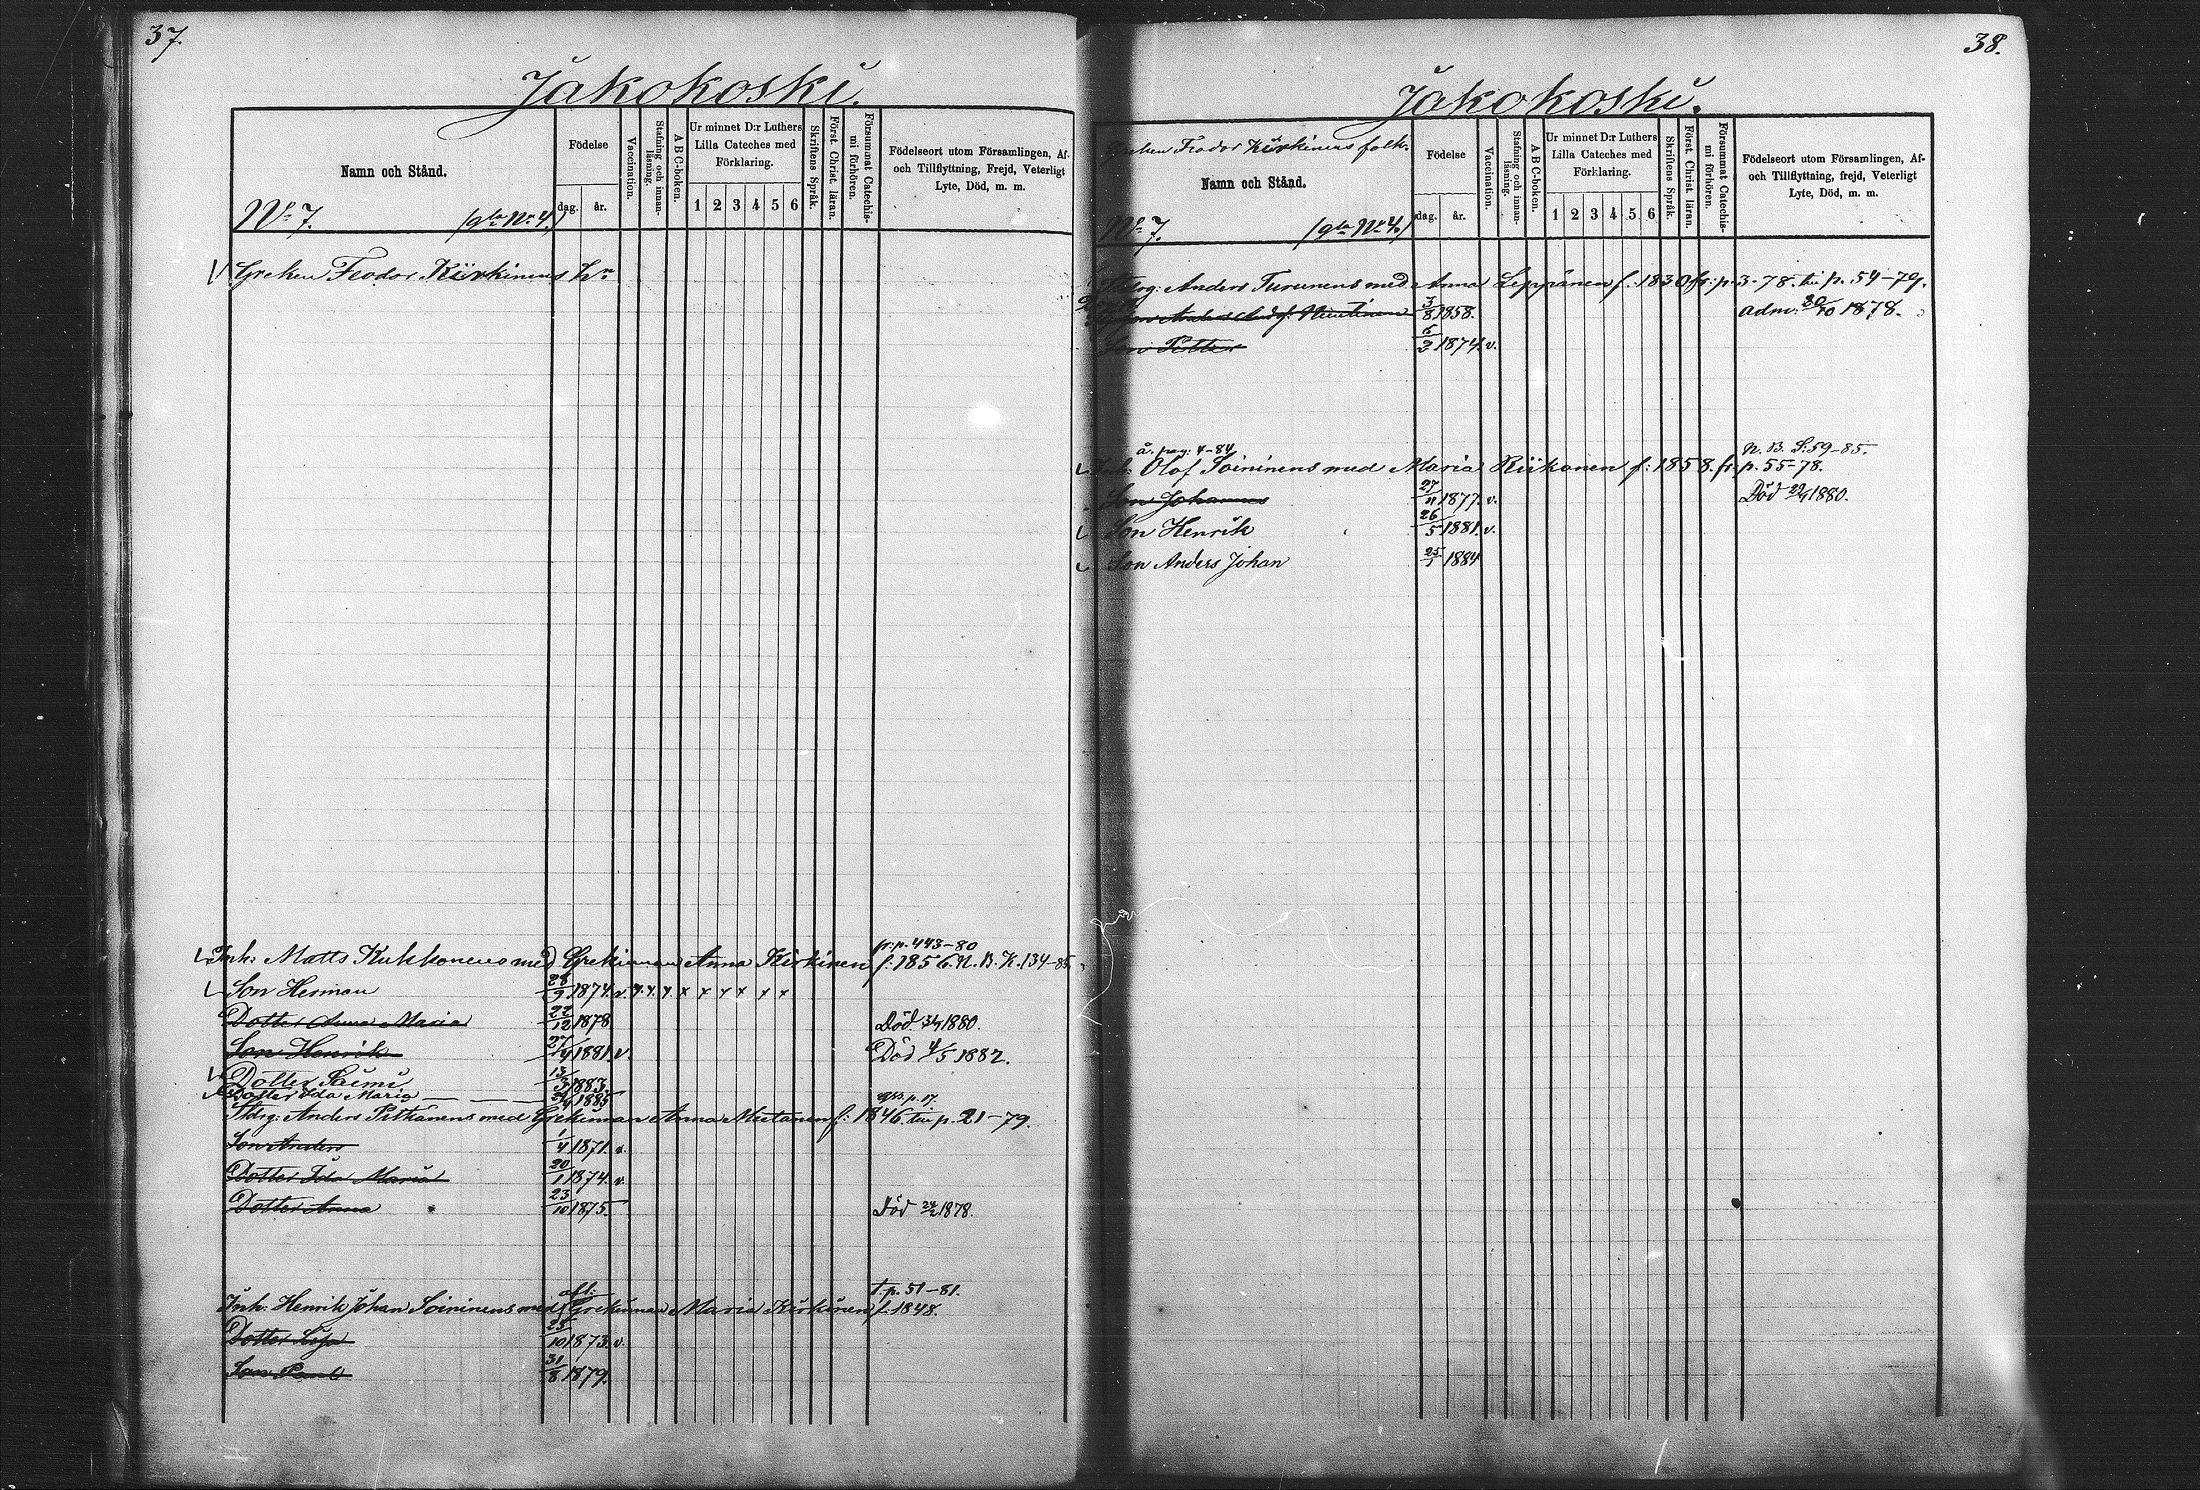 37.
Jakokoski.
Namn och Stånd.
Födelse
dag.
år.
Vaccination.
Stafning och innan-läsning.
A B C-boken.
Ur minnet D:r Luthers
Lilla Cateches med
Förklaring.
1 2 3 4 5 6
Skriftens Språk.
Först. Christ. läran.
Försummat Catechis-mi förhören.
Födelseort utom Församlingen, Af-
och Tillflyttning, Frejd, Veterligt
Lyte, Död, m. m.
No 7. (gla No 4.)
Greken Feodor Kiirkinens Hn
fr. p. 443-80
Inh: Matts Kukkonens med Grekinnan Anna Kirkinen f. 1856. N. B. K. 134-85.
Son Herman 28/9 1874. v.
Dotter Anna Maria 22/12 1878 Död 1880.
Son Henrik 1881. v. Död 4/5 1882.
Dotter Saimi 13/3 1883.
Dotter Ida Maria 1885
Anders Pitkänens med Grekinnan Anna Miettinen f: 1846. p. 21-79.
Son Anders 1/4 1871. v.
Dotter Ida Maria 20/1 1874. v.
Dotter Anna 23/10 1875. Död 1878.
afl: t. p. 51-81.
Inh: Henrik Johan Soininens med Grekinnan Maria Kirkinen f. 1848.
Dotter 25/10 1873. v.
Son Paul 31/8 1879.
38.
Jakokoski.
Greken Feodor Kiirkinens folk.
Namn och Stånd.
Födelse
dag.
år.
Vaccination.
Stafning och innan-läsning.
A B C-boken.
Ur minnet D:r Luthers
Lilla Cateches med
Förklaring.
1 2 3 4 5 6
Skriftens Språk.
Först. Christ. läran.
Försummat Catechis-mi förhören.
Födelseort utom Församlingen, Af-
och Tillflyttning, frejd, Veterligt
Lyte, Död, m. m.
No 7. (gla No 4.)
Anders Turunens med Anna Leppänen f. 1830 fr: p. 3-78. p. 54-79.
3/8 1858. adm. 20/10 1878.
Son Petter 6/2 1874. v.
å. pag: 4-84 N. B. S. 59-85.
Inh: Olof Soininens med Maria Riikonen f: 1858. fr. p. 55-78.
Son Johannes 27/11 1877. v. Död 1880.
Son Henrik 26/5 1881. v.
Son Anders Johan 25/1 1884